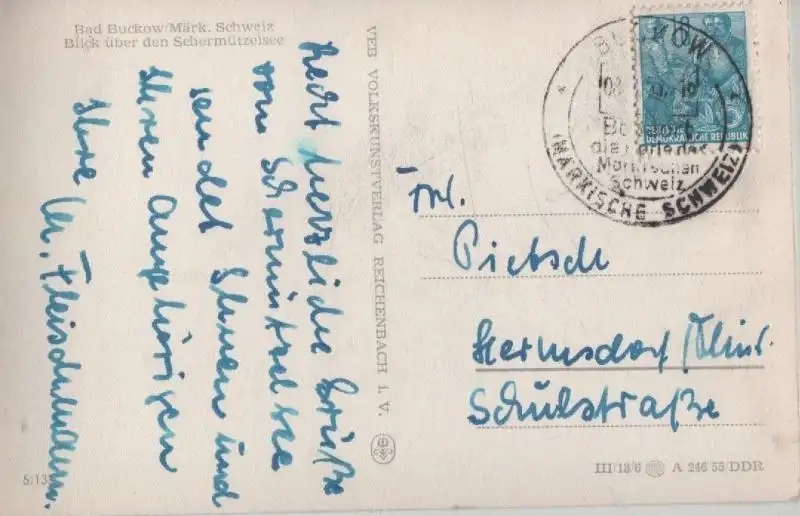 Bad Buckow/Märk. Schweiz
Blick über den Schermützelsee
Recht herzliche Grüße
vom Schermützelsee
sendet Ihnen und
Ihren Angehörigen
Ihre M. Fleischmann.
VEB VOLKSKUNSTVERLAG REICHENBACH i. V.
BUCKOW
08
die Perle der
Märkischen
Schweiz
(MÄRKISCHE SCHWEIZ)
DEUTSCHE
DEMOKRATISCHE REPUBLIK
Frl.
Pietsch
Hermsdorf/Thür.
Schulstraße
III/18/6 A 246 55/DDR